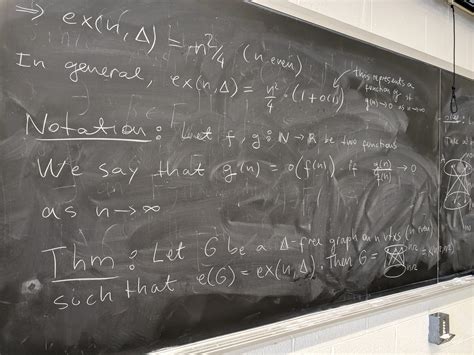 ⇒ ex(n, Δ) = n²/4 (n even)
In general, ex(n, Δ) = n²/4 · (1 + o(1))
this represents a
function g(n) st
g(n) → 0 as n → ∞
Notation: Let f, g: N → R be two functions
We say that g(n) = o(f(n)) if g(n)/f(n) → 0
as n → ∞
Thm: Let G be a Δ-free graph on n vtxs (n even)
such that e(G) = ex(n, Δ). Then G =
n/2
n/2